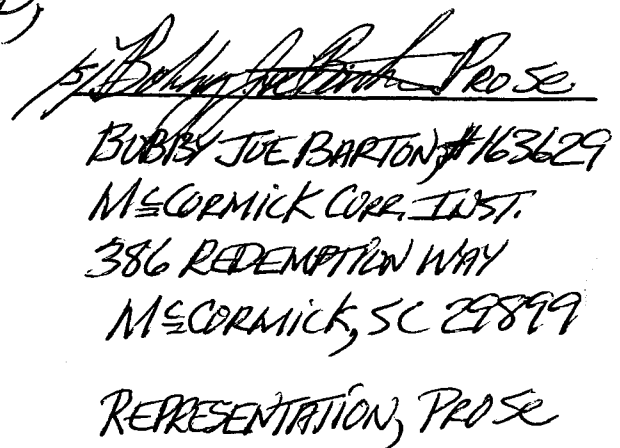 /s/ Bobby Joe Barton Pro se.
BOBBY JOE BARTON, #163629
McCORMICK CORR. INST.
386 REDEMPTION WAY
McCORMICK, SC 29899
REPRESENTATION, PRO Se